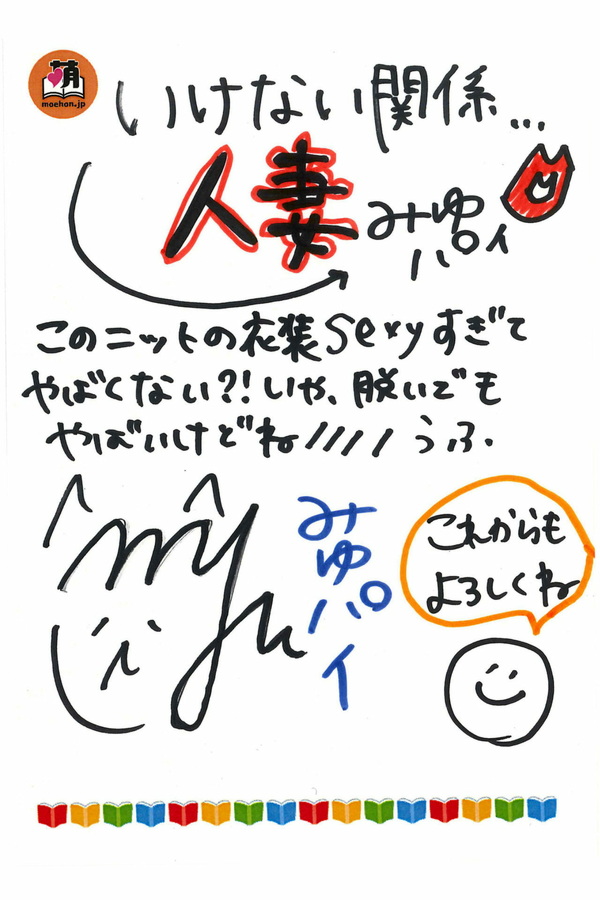 萌
moehon.jp
いけない関係...
人妻みゆパイ
このニットの衣装Sexyすぎて
やばくない?!いや、脱いでも
やばいけどね//// うふ.
myu
みゆパイ
これからも
よろしくね